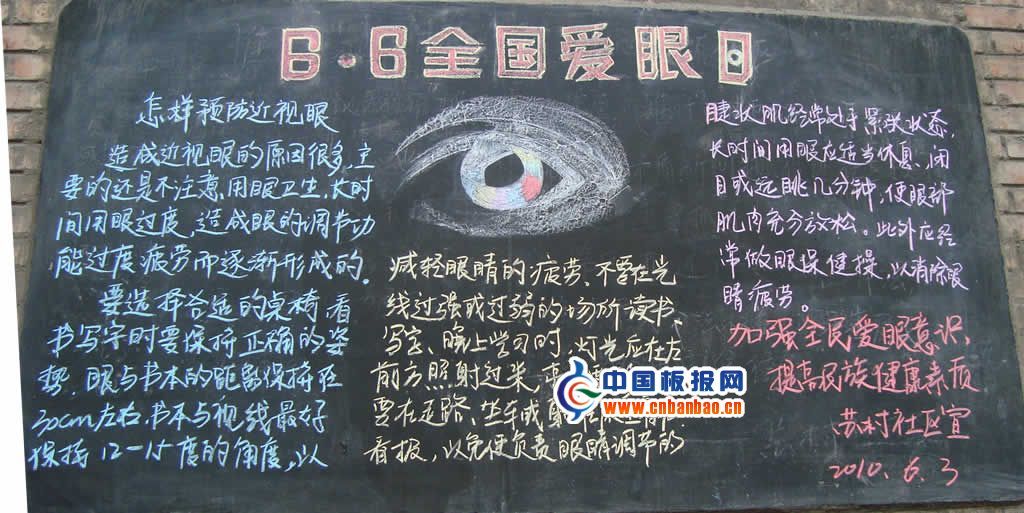 6·6全国爱眼日
怎样预防近视眼
造成近视眼的原因很多,主
要的还是不注意用眼卫生,长时
间用眼过度,造成眼的调节功
能过度疲劳而逐渐形成的。
要选择合适的桌椅看
书写字时要保持正确的姿
势,眼与书本的距离保持在
30cm左右.书本与视线最好
保持12—15度的角度,以
减轻眼睛的疲劳、不要在光
线过强或过弱的场所读书、
写字、晚上学习时,灯光应在左
前方照射过来,
要在走路、坐车或
看报,以免使负责眼睛调节的
睫状肌经常处于紧张状态,
长时间用眼应适当休息、闭
目或远眺几分钟,使眼部
肌肉充分放松。此外应经
常做眼保健操,以消除眼
睛疲劳。
加强全民爱眼意识,
提高民族健康素质
苏村社区宣
2010.6.3
中国板报网
www.cnbanbao.cn